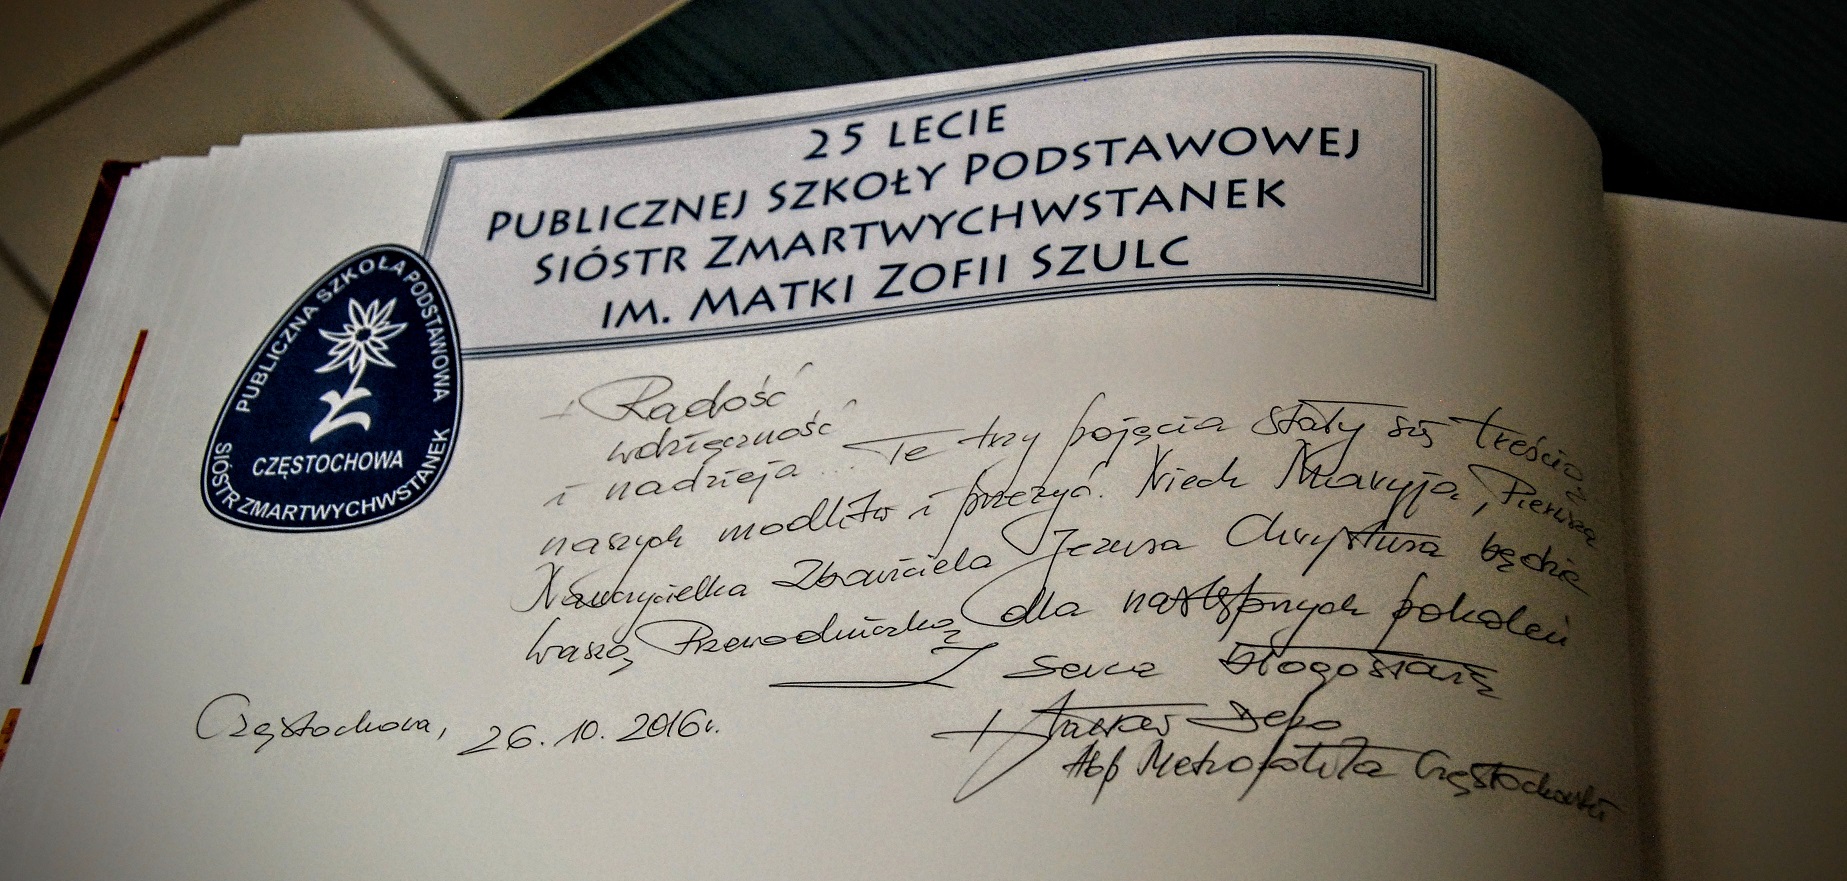 25 LECIE
PUBLICZNEJ SZKOŁY PODSTAWOWEJ
SIÓSTR ZMARTWYCHWSTANEK
IM. MATKI ZOFII SZULC
PUBLICZNA SZKOŁA PODSTAWOWA
CZĘSTOCHOWA
SIÓSTR ZMARTWYCHWSTANEK
+ Radość
wdzięczność
i nadzieja... Te trzy pojęcia stały się treścią
naszych modlitw i przeżyć. Niech Maryja, Pierwsza
Nauczycielka Zbawiciela Jezusa Chrystusa będzie
waszą Przewodniczką dla następnych pokoleń
Z serca błogosławię
+ Wacław Depo
Abp Metropolita Częstochowski
Częstochowa, 26.10.2016r.